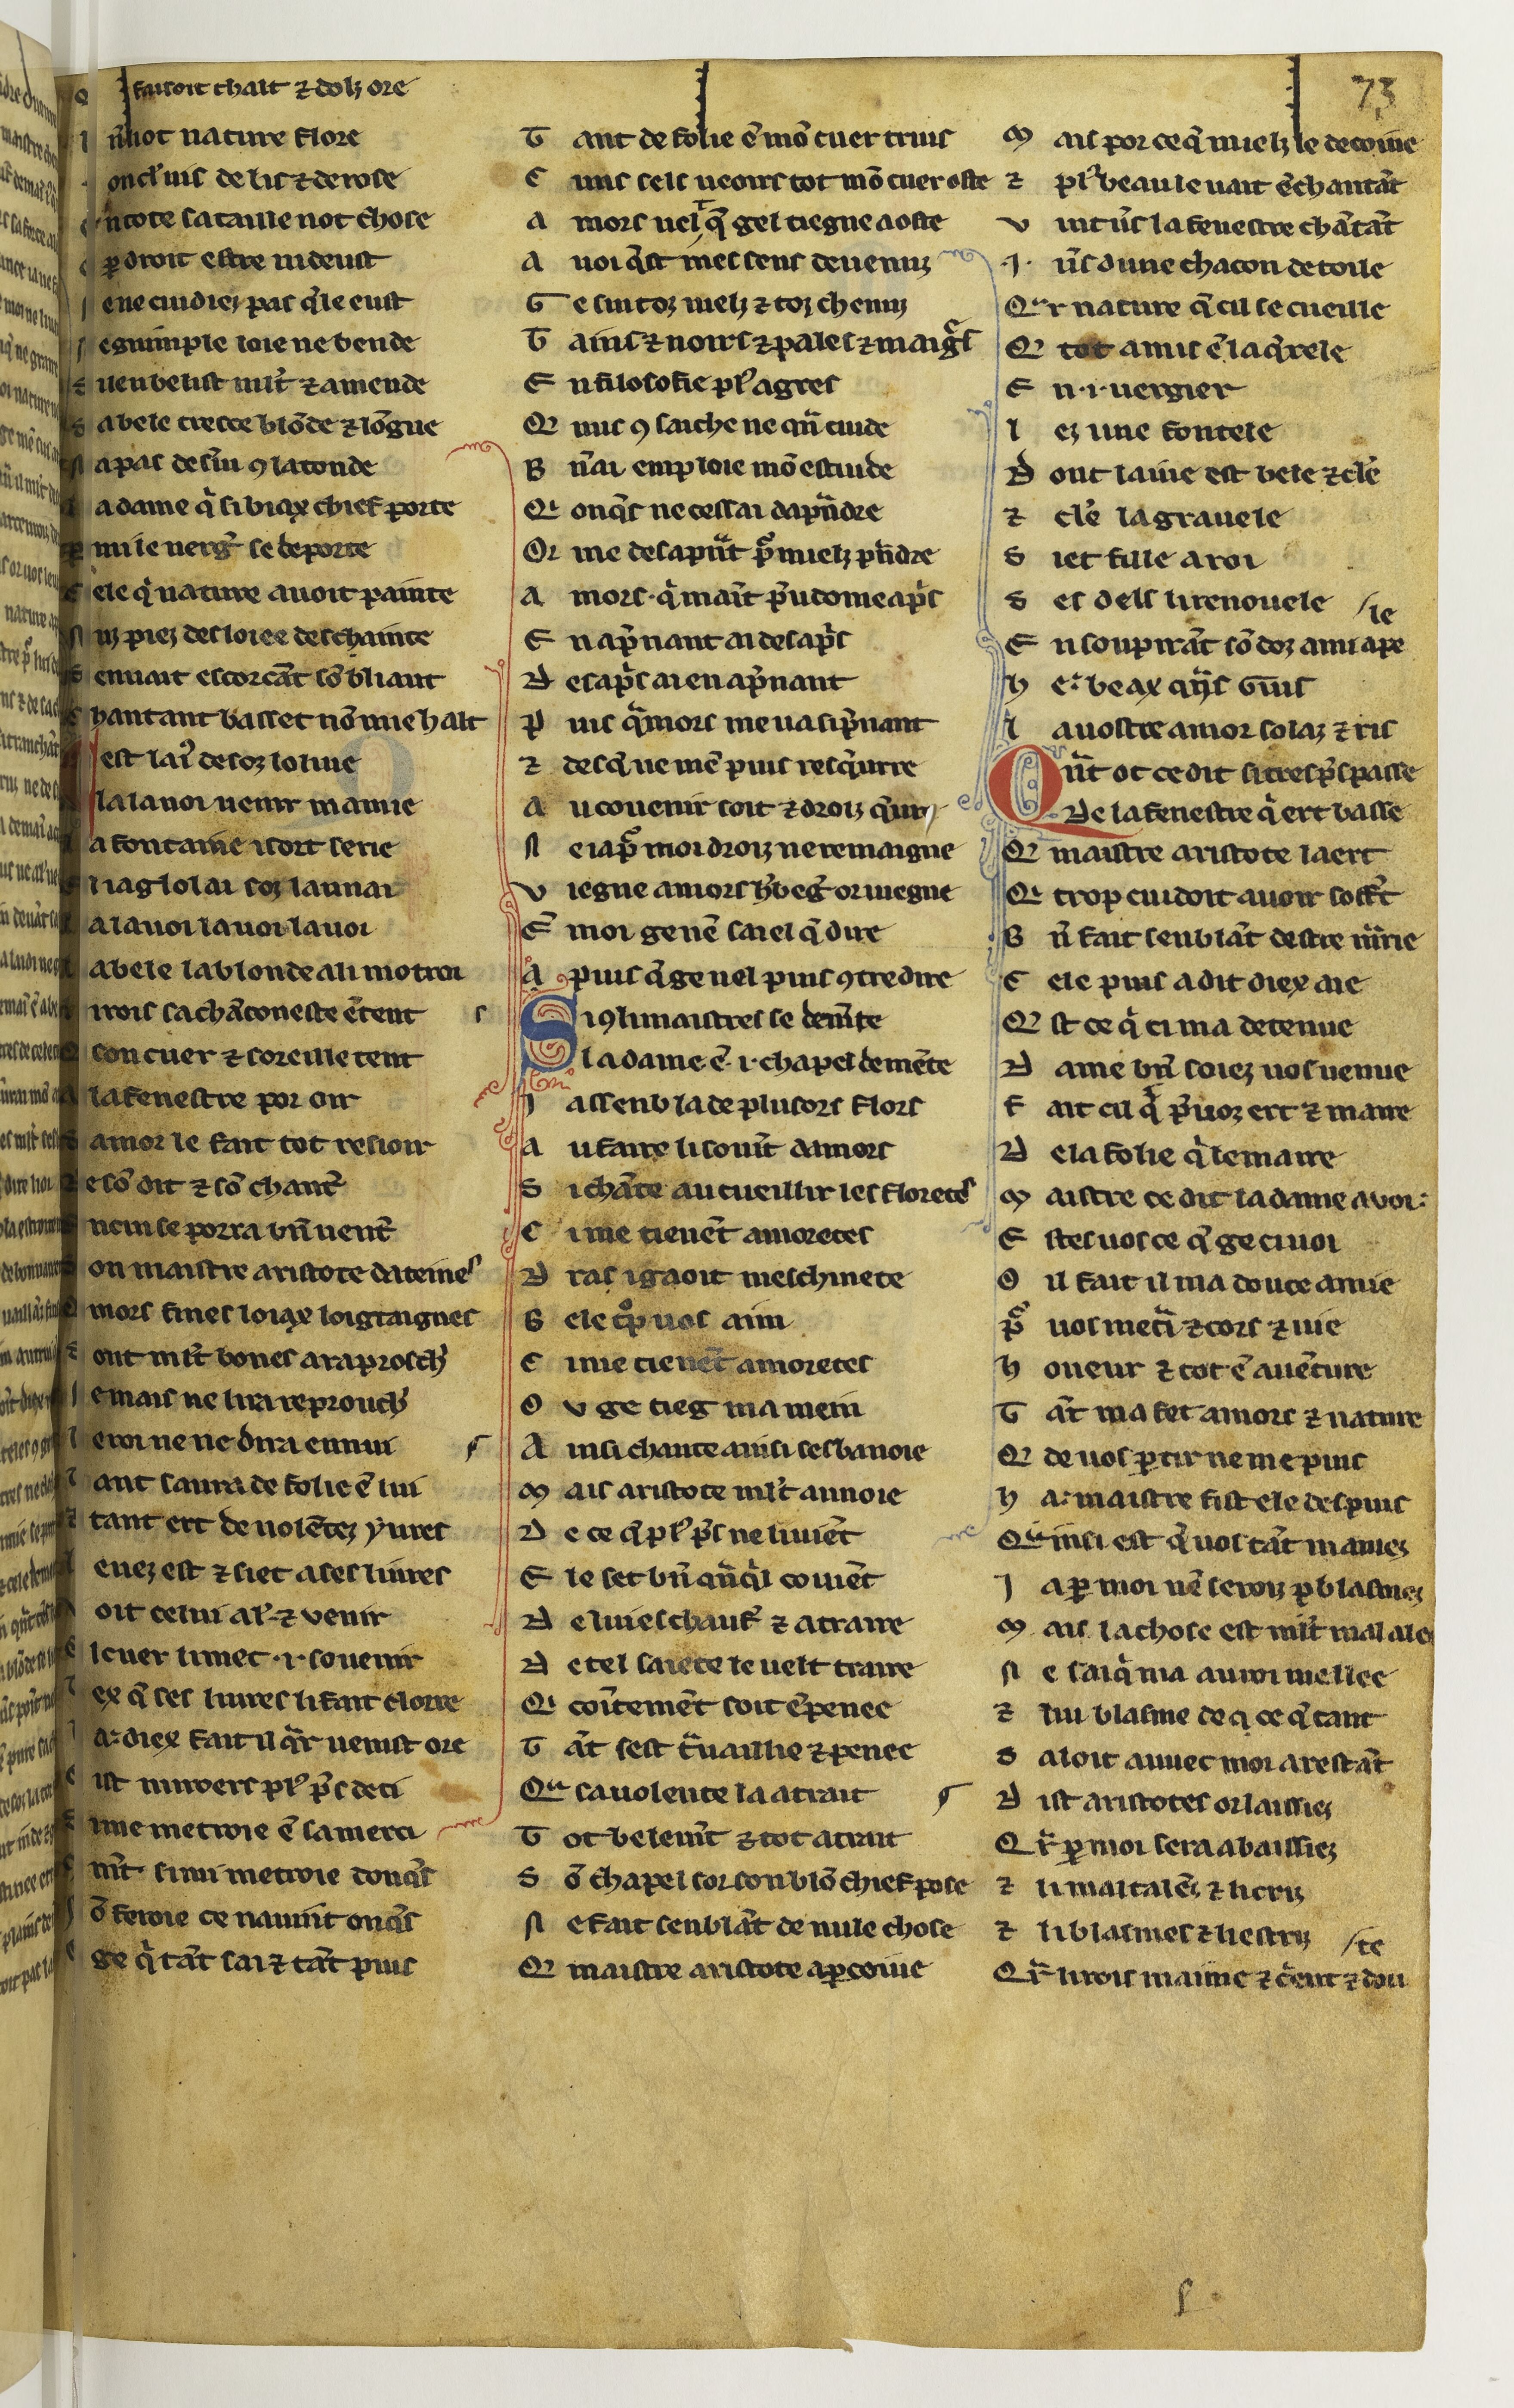 73
faisoit chalt ⁊ dolz ore
n̄uot nature flore
on cl̓ uis de lis ⁊ de rose
n tote sa taille not chose
ꝑ droit estre ni deust
ene cuidiez pas q̄le eust
e guimple loie ne bende
uenbelist mlt̓ ⁊ amende
a bele tresce blōde ⁊ lōgue
a pas deserui ꝯ la tonde
a dame q̓ si biax chief porte
mi le uerg̓ se deporte
ele q̓ nature auoit painte
uz piez desloiee deschainte
en uait escorcāt sō bliaut
hantant basset nō mie halt
est la i̓ desoz loliue
la la uoi uenir mamie
a fontaine i sort serie
l iaglolai soz launai
a la uoi la uoi la uoi
a bele la blonde a li motroi
irois sa chāconeste ētent
son cuer ⁊ soreille tent
la fenestre por oir
amor le fait tot resioir
e sō dit ⁊ sō chanter̓
nemise porra bn̄ uent̓
on maistre aristote dateines
mors fines loiax loigtaignes
ont mlt̓ bones a raproschier̓
e mais ne lira reprouch̓
e roi ne ne dira ennui
ant saura de folie ē lui
tant ert de uolētez yures
euez est ⁊ siet a ses liures
oit celui al̓ ⁊ venir
l cuer li met .i. souenir
ex q̄ ses liures li fait clorre
a: diex fait il q̓r uenist ore
ist miroers pl̓ p̓s de ci
ime metroie ē sa merci
m̄t. si mi metroie donq̄s
ō feroie ce nauint onq̄s
ge q̓ tāt sai ⁊ tāt puis
T ant de folie ē mō cuer truis
C uns sels ueoirs tot mō cuer oste
A mors uelt q̄ gel tiegne a oste
A uoi q̄st mes sens deuenuz
G e sui toz uielz ⁊ toz chenuz
T ainz ⁊ noirs ⁊ pales ⁊ maig̓s
E n filosofie pl̓ agres
Q nus ꝯ saiche ne qn̄ cuide
B n̄ ai emploie mō estuide
Q onq̄s ne cessai dapn̄dre
Or me desapn̄t p̓ mielz pn̄dre
A mors. q̓ maīt p̄udome ap̓s
E n ap̄nant ai desap̓s
D esap̓s ai en ap̄nant
P uis q̄mors me ua sip̄nant
⁊ desq̄ ne mē puis resq̄urre
A u couenir soit ⁊ droiz q̄ur
N e ia p̓ moi droiz ne remaigne
V iegne amors h̓beg̓ or uiegne
E n̄ moi ge nē sai el q̄ dire
A puis q̄ ge nel puis ꝯtredire
Si ꝯ li maistres se demēte
la dame ē .i. chapel de mēte
J assenbla de plusors flors
A u faire li souīt damors
S i chāte au cueillir les floretes
C i me tienēt amoretes
D ras i gaoit meschinete
B ele tͦp uos aim
C i me tienēt amoretes
O v ge tieg ma mein
A insi chante ainsi sesbanoie
M ais aristote mlt̓ annoie
D e ce q̄ pl̓ p̓s ne li uiēt
E le set bn̄ qn̄q̄l couiēt
D e lui eschauf̓ ⁊ a traire
D e tel saiete le uelt traire
Q coītemēt soit ēpenee
T āt sest t̓uaillie ⁊ penee
Q sa uolente la atrait
T ot belem̄t ⁊ tot atrait
S ō chapel sor son blō chief pose
N e fait senblāt de nule chose
Q maistre aristote apcoiue
M ais por ce q̄ mielz le decoiue
⁊ pl̓ beau le uait ēchantāt
V int ūs la fenestre chātāt
.I. ūs dune chacon de toile
Qr nature q̄ cil se cueille
Q tot a mis ē la q̄rele
E n .i. uergier
l ez une fontele
D ont laiue est bele ⁊ cle̓
⁊ cle̓ la grauele
S iet fille a roi
S es dels li renouele
E n soupirāt sō doz ami apele
h e: beax q̄ns Guis
l a uostre amor solaz ⁊ ris
Qn̄t ot ce dit si tres p̓s passe
De la fenestre q̓ ert basse
Q maistre aristote la ert
Q trop cuidoit auoir soff̓t
B n̄ fait senblāt destre mīrie
C ele puis a dit diex aie
Q st ce q̓ ci ma detenue
D ame bn̄ soiez uos uenue
F ait cil q̓ p̄ uoz ert ⁊ maire
D e la folie q̓ le maire
M aistre ce dit la dame a uoi:
E stes uos ce q̄ ge ci uoi
O il fait il ma douce amie
p̓ uos metra̓ ⁊ cors ⁊ uie
h oneur ⁊ tot ē auēture
T āt ma fet amors ⁊ nature
Q de uos ꝑtir ne me puis
h a: maistre fist ele des puis
Q ainsi est q̄ uos tāt mamez
J a ꝑ moi nē seroiz ꝑ blasmez
M ais la chose est mlt̓ mal alee
N e sai q̓ ma au roi mellee
⁊ lui blasme de q ce q̄ tant
S aloit auuec moi arestāt
D ist aristotes or laissiez
Qr ꝑ moi sera abaissiez
⁊ li maltalēs ⁊ li criz
⁊ li blasmes ⁊ li estriz
Qr li rois maime ⁊ crēnt ⁊ doute